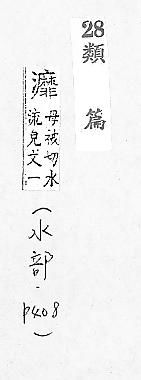 28
類
篇
灖
母被切水
流皃文一
(水部·p408)